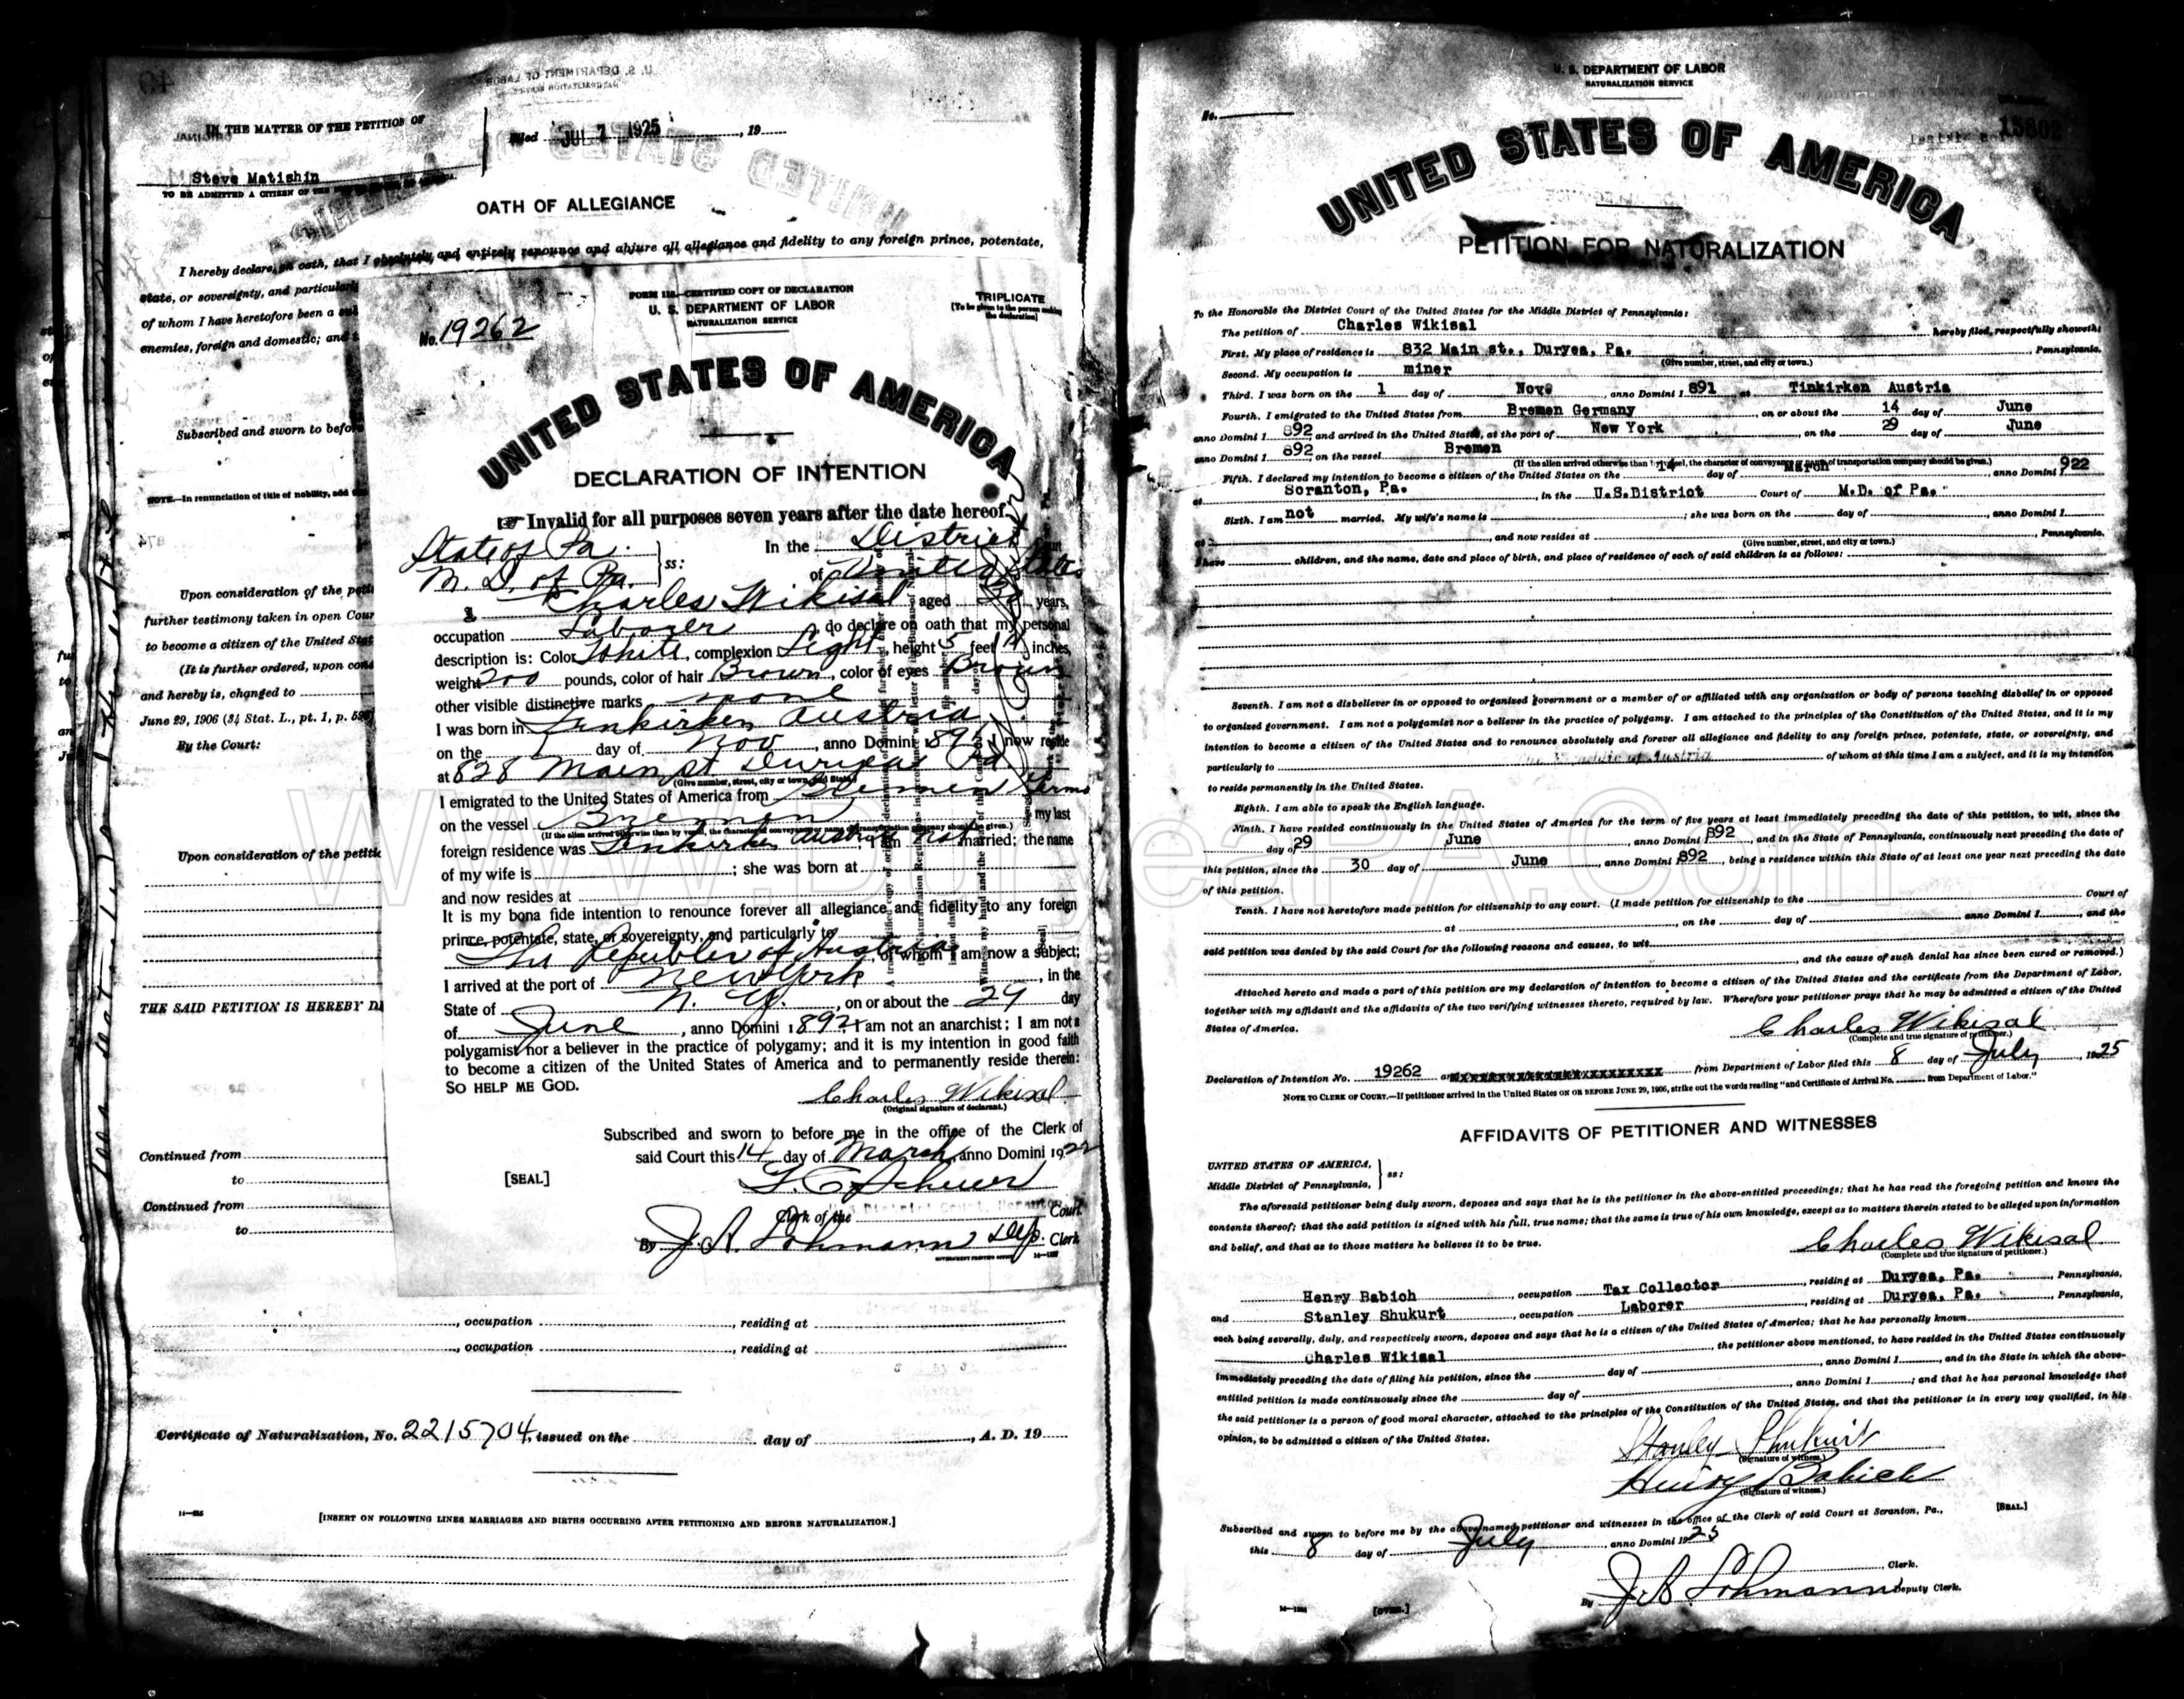 IN THE MATTER OF THE PETITION OF
Steve Matishin
TO BE ADMITTED A CITIZEN OF THE UNITED STATES OF AMERICA.
Filed JUL 7 1925, 19
OATH OF ALLEGIANCE
I hereby declare, on oath, that I absolutely and entirely renounce and abjure all allegiance and fidelity to any foreign prince, potentate,
state, or sovereignty, and particularly
of whom I have heretofore been a
enemies, foreign and domestic; and
Subscribed and sworn to before
NOTE.—In renunciation of title of nobility, add
Upon consideration of the
further testimony taken in open Court
to become a citizen of the United
(It is further ordered, upon
and hereby is, changed to
June 29, 1906 (34 Stat. L., pt. 1, p.
By the Court:
Upon consideration of the
THE SAID PETITION IS HEREBY
Continued from
to
Continued from
to
, occupation , residing at
, occupation , residing at
Certificate of Naturalization, No. 2215704, issued on the day of , A. D. 19
[INSERT ON FOLLOWING LINES MARRIAGES AND BIRTHS OCCURRING AFTER PETITIONING AND BEFORE NATURALIZATION.]
CERTIFIED COPY OF DECLARATION
U. S. DEPARTMENT OF LABOR
NATURALIZATION SERVICE
TRIPLICATE
[To be given to the person making the declaration]
No. 19262
UNITED STATES OF AMERICA
DECLARATION OF INTENTION
☞ Invalid for all purposes seven years after the date hereof.
State of Pa.
M. D. of Pa. ss:
In the District
of United States
I, Charles Wikisal, aged 30 years,
occupation Laborer, do declare on oath that my personal
description is: Color White, complexion Light, height 5 feet inches,
weight 200 pounds, color of hair Brown, color of eyes Brown
other visible distinctive marks none
I was born in Tinkirken Austria
on the 1 day of Nov, anno Domini 1891; I now reside
at 828 Main St Duryea Pa.
(Give number, street, city or town, and State.)
I emigrated to the United States of America from Bremen
on the vessel Bremen; my last
(If the alien arrived otherwise than by vessel, the character of conveyance or name of transportation company should be given.)
foreign residence was Tinkirken Austria; I am not married; the name
of my wife is ; she was born at
and now resides at
It is my bona fide intention to renounce forever all allegiance and fidelity to any foreign
prince, potentate, state, or sovereignty, and particularly to
The Republic of Austria, of whom I am now a subject;
I arrived at the port of New York, in the
State of N. Y., on or about the 29 day
of June, anno Domini 1892; I am not an anarchist; I am not a
polygamist nor a believer in the practice of polygamy; and it is my intention in good faith
to become a citizen of the United States of America and to permanently reside therein:
SO HELP ME GOD.
Charles Wikisal
(Original signature of declarant.)
Subscribed and sworn to before me in the office of the Clerk of
said Court this 14 day of March, anno Domini 1922
[SEAL]
Clerk of the Court.
By J. A. Lohmann Dep. Clerk
U. S. DEPARTMENT OF LABOR
NATURALIZATION SERVICE
No.
15802
UNITED STATES OF AMERICA
PETITION FOR NATURALIZATION
To the Honorable the District Court of the United States for the Middle District of Pennsylvania:
The petition of Charles Wikisal hereby filed, respectfully showeth:
First. My place of residence is 832 Main st., Duryea, Pa., Pennsylvania.
(Give number, street, and city or town.)
Second. My occupation is miner
Third. I was born on the 1 day of Nov, anno Domini 1891, at Tinkirken Austria
Fourth. I emigrated to the United States from Bremen Germany, on or about the 14 day of June
anno Domini 1892, and arrived in the United States, at the port of New York, on the 29 day of June
anno Domini 1892, on the vessel Bremen
(If the alien arrived otherwise than by vessel, the character of conveyance or name of transportation company should be given.)
Fifth. I declared my intention to become a citizen of the United States on the 14 day of March anno Domini 1922
at Scranton, Pa., in the U.S.District Court of M.D. of Pa.
Sixth. I am not married. My wife's name is ; she was born on the day of , anno Domini 1
at , and now resides at , Pennsylvania.
(Give number, street, and city or town.)
I have children, and the name, date and place of birth, and place of residence of each of said children is as follows:
Seventh. I am not a disbeliever in or opposed to organized government or a member of or affiliated with any organization or body of persons teaching disbelief in or opposed
to organized government. I am not a polygamist nor a believer in the practice of polygamy. I am attached to the principles of the Constitution of the United States, and it is my
intention to become a citizen of the United States and to renounce absolutely and forever all allegiance and fidelity to any foreign prince, potentate, state, or sovereignty, and
particularly to The Republic of Austria of whom at this time I am a subject, and it is my intention
to reside permanently in the United States.
Eighth. I am able to speak the English language.
Ninth. I have resided continuously in the United States of America for the term of five years at least immediately preceding the date of this petition, to wit, since the
29 day of June, anno Domini 1892, and in the State of Pennsylvania, continuously next preceding the date of
this petition, since the 30 day of June, anno Domini 1892, being a residence within this State of at least one year next preceding the date
of this petition.
Tenth. I have not heretofore made petition for citizenship to any court. (I made petition for citizenship to the Court of
at , on the day of anno Domini 1, and the
said petition was denied by the said Court for the following reasons and causes, to wit
, and the cause of such denial has since been cured or removed.)
Attached hereto and made a part of this petition are my declaration of intention to become a citizen of the United States and the certificate from the Department of Labor,
together with my affidavit and the affidavits of the two verifying witnesses thereto, required by law. Wherefore your petitioner prays that he may be admitted a citizen of the United
States of America.
Charles Wikisal
(Complete and true signature of petitioner.)
Declaration of Intention No. 19262 from Department of Labor filed this 8 day of July, 1925
NOTE TO CLERK OF COURT.—If petitioner arrived in the United States ON OR BEFORE JUNE 29, 1906, strike out the words reading "and Certificate of Arrival No. from Department of Labor."
AFFIDAVITS OF PETITIONER AND WITNESSES
UNITED STATES OF AMERICA,
Middle District of Pennsylvania, ss:
The aforesaid petitioner being duly sworn, deposes and says that he is the petitioner in the above-entitled proceedings; that he has read the foregoing petition and knows the
contents thereof; that the said petition is signed with his full, true name; that the same is true of his own knowledge, except as to matters therein stated to be alleged upon information
and belief, and that as to those matters he believes it to be true.
Charles Wikisal
(Complete and true signature of petitioner.)
Henry Babich, occupation Tax Collector, residing at Duryea, Pa., Pennsylvania,
and Stanley Shukurt, occupation Laborer, residing at Duryea, Pa., Pennsylvania,
each being severally, duly, and respectively sworn, deposes and says that he is a citizen of the United States of America; that he has personally known
Charles Wikisal, the petitioner above mentioned, to have resided in the United States continuously
immediately preceding the date of filing his petition, since the day of , anno Domini 1, and in the State in which the above-
entitled petition is made continuously since the day of anno Domini 1; and that he has personal knowledge that
the said petitioner is a person of good moral character, attached to the principles of the Constitution of the United States, and that the petitioner is in every way qualified, in his
opinion, to be admitted a citizen of the United States.
Stanley Shukurt
(Signature of witness.)
Henry Babich
(Signature of witness.)
Subscribed and sworn to before me by the above-named petitioner and witnesses in the office of the Clerk of said Court at Scranton, Pa.,
[SEAL.]
this 8 day of July anno Domini 1925
Clerk.
By J. A. Lohmann Deputy Clerk.
[OVER.]
www.DuryeaPA.com